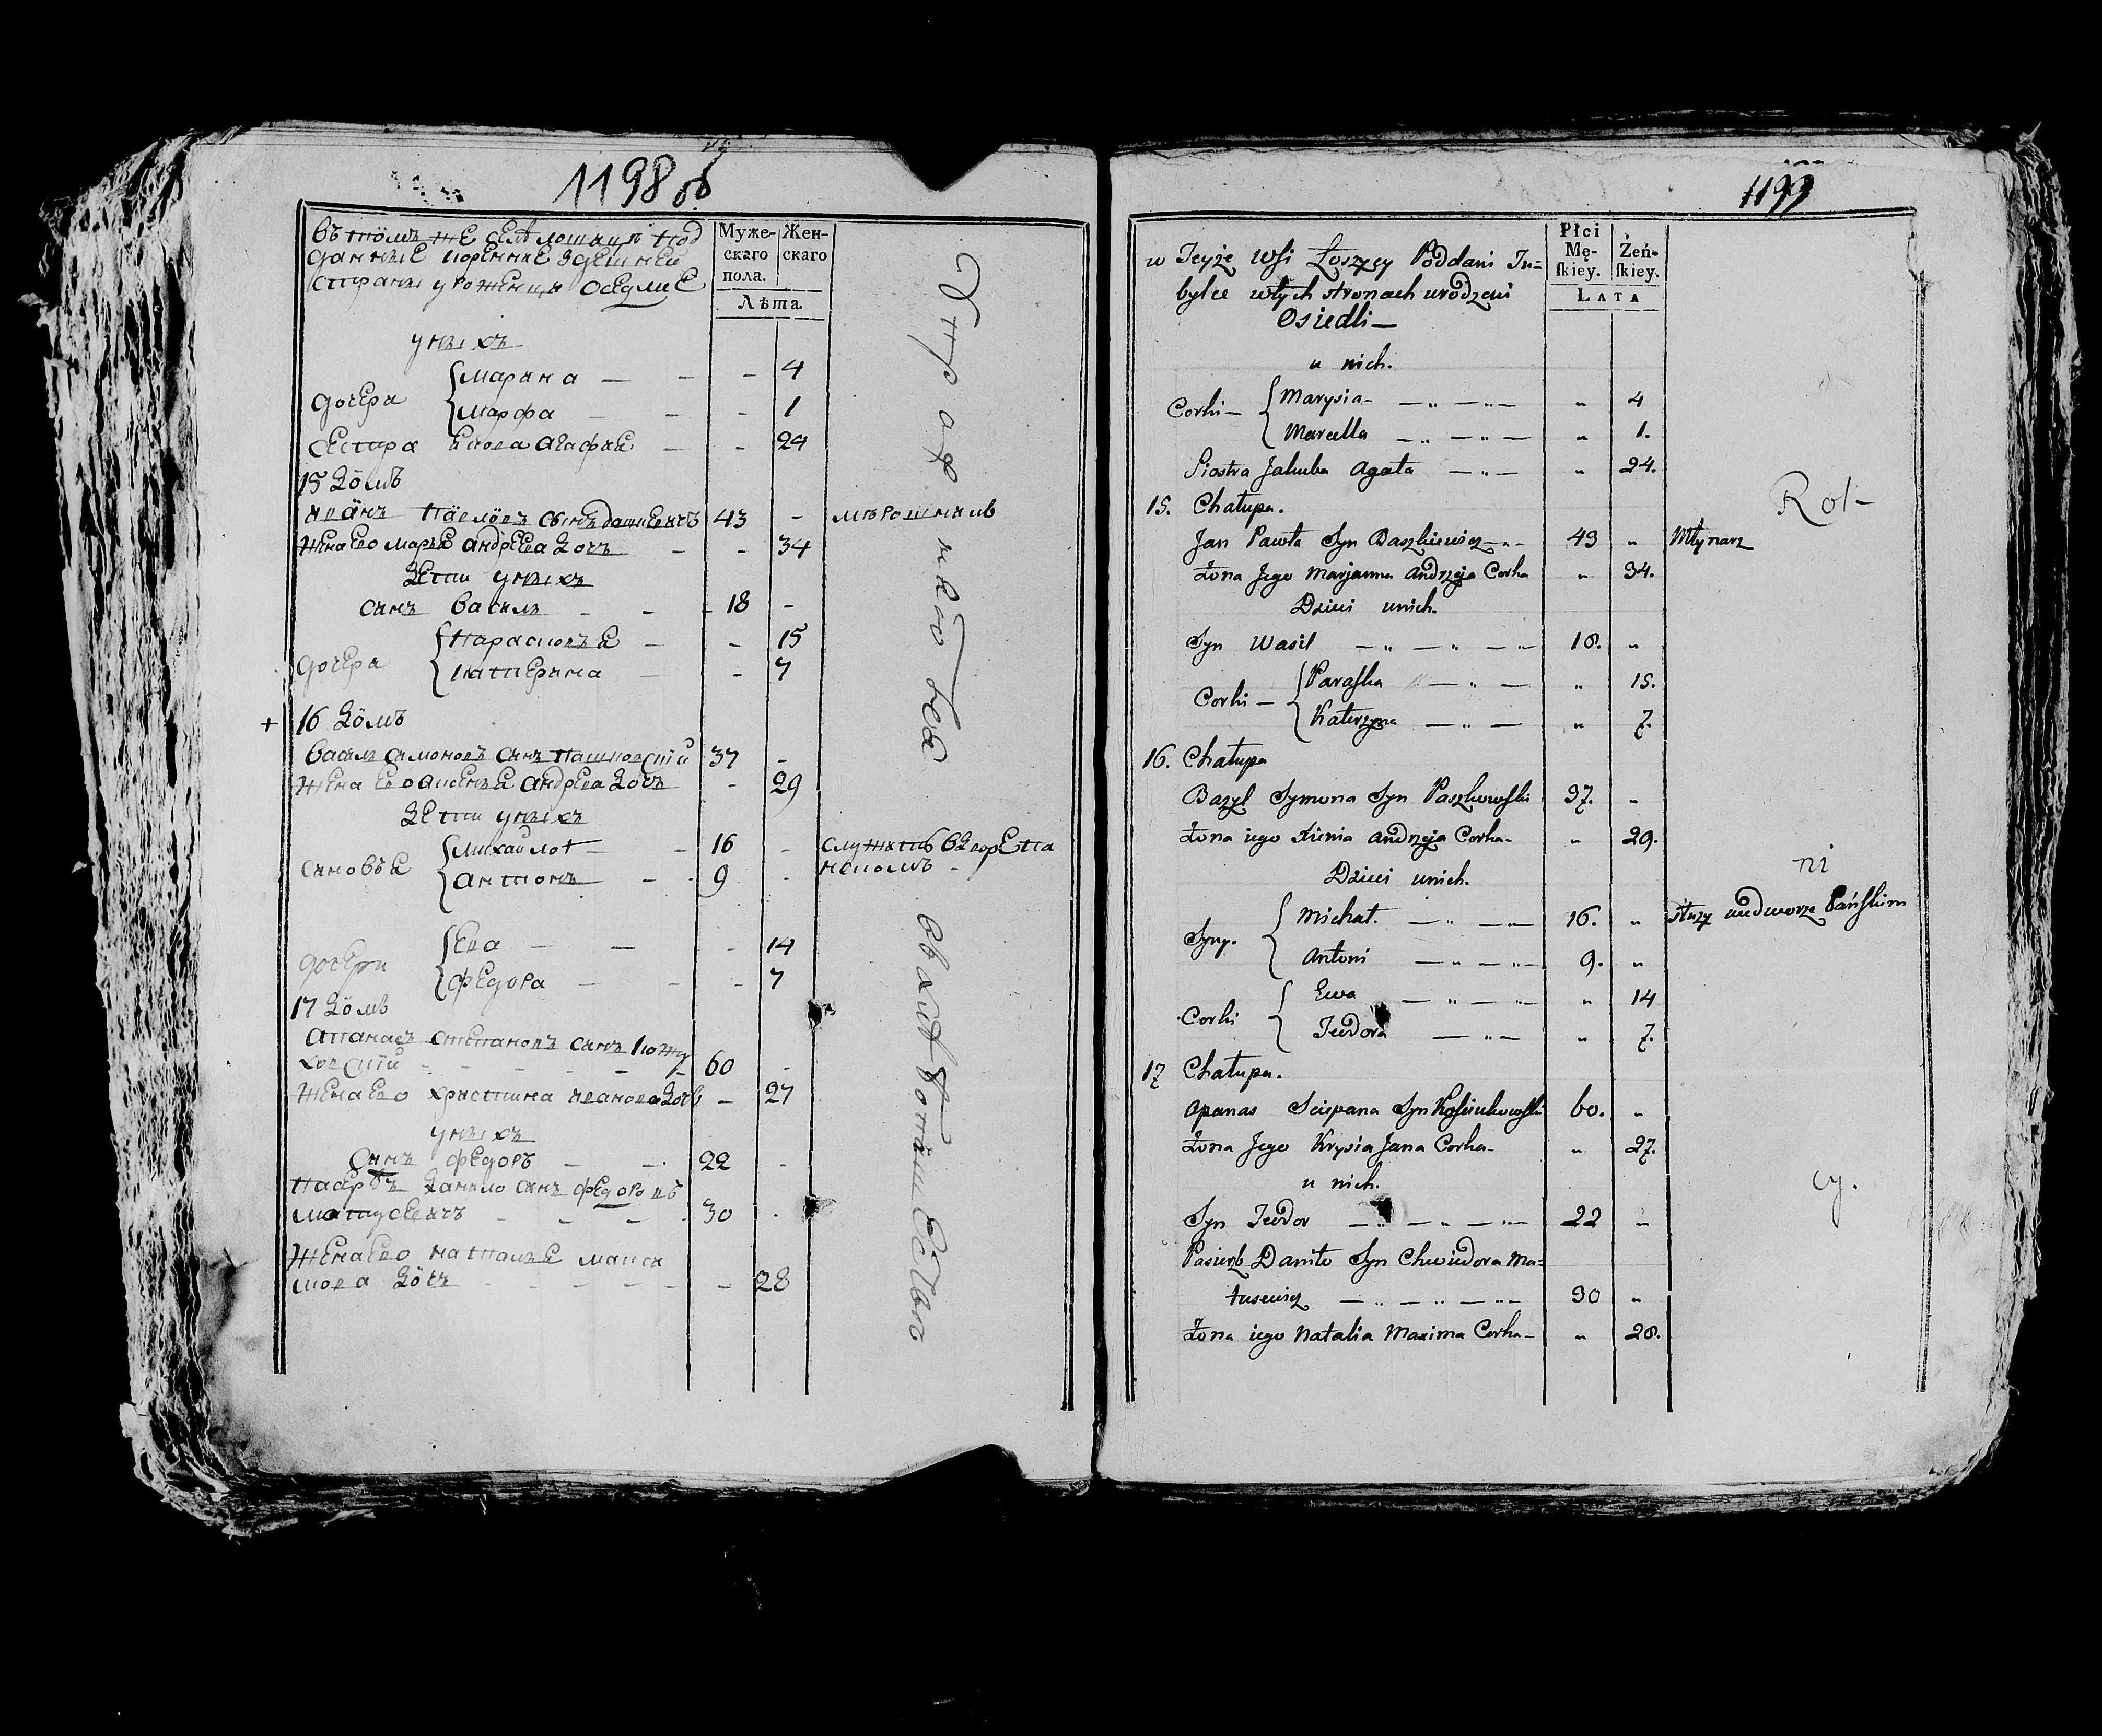 1198 об
въ томъ же селѣ лошица под
данные коренные здешней
страны уроженци оседлие
Муже-
скаго
пола.
Жен-
скаго
Лѣта.
у ныхъ
дочера
марина — — - 4
марфа - - - 1
сестра агафия — - 24
15 домъ
иванъ павловъ сынъ дашкевичъ 43 - мѣрошникъ
жена его андреева дочь - - 34
дети у ныхъ
синъ василь - - - 18 -
дочера
парасковъя — - 15
катерина - 7
+ 16 домъ
василь симоновъ синъ пашковский 37 -
жена его андреева дочь - 29
дети у ныхъ
синовъе
михайло — - 16 -
антонъ - - 9 -
дочери
ева — — - 14
федора — - - 7
17 домъ
апанасъ степановъ синъ
ховский - - - - - - 60 -
жена его христина иванова дочь — 27
у ныхъ
синъ федоръ - - 22 -
данило синъ федоровъ
матусевичъ - - - - 30 -
жена его наталья макси
мова дочь - - - - - - 28
1199
w Teyże wsi Łoszycy Poddani Tu=
bylce w tych stronach urodzeni
Osiedli —
Płci
Mę-
ſkiey.
Żeń-
ſkiey.
Lata
u nich.
Corki —
Marysia — „ — „ — „ 4
Marcella — „ — „ — „ 1.
Siostra Jakuba Agata — „ — „ 24.
Rol-
15. Chałupa.
Jan Pawła Syn Daszkiewicz — „ - 43 „ Młynarz
Żona Jego Marjanna Andrzeja Corka „ 34.
Dzieci u nich.
Syn Wasil — „ — „ — „ 18. „
Corki —
Paraſka — „ — „ 15.
Katerzyna — „ — „ 7.
16. Chałupa
Bazyl Symona Syn Paszkowſki 37. „
Żona iego Xienia Andrzeja Corka - „ 29.
Dzieci u nich.
ni
Syny.
Michał. — „ — „ — 16. „ służy we dworze Pańſkim
Antoni — „ — „ — 9. „
Corki
Ewa — „ — „ — „ 14
Teodora — „ — „ 7.
17 Chałupa.
Apanas Sciepana Syn 60. „
Żona Jego Krysia Jana Corka - „ 27.
u nich.
cy.
Syn Teodor — „ — „ — „ — 22 „
Pasierb Daniło Syn Chwiedora Ma=
tusewicz — „ — „ — „ — 30 „
Żona iego Natalia Maxima Corka — „ 28.